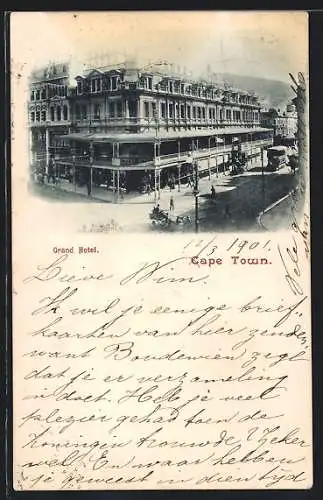 Grand Hotel.
12/3 1901.
Cape Town.
Lieve Wim.
Ik wil je eenige brief-
kaarten van hier zenden,
want Boudewien zegt
dat je er verzameling
in doet. Heb je veel
plezier gehad toen de
Koningin trouwde? Zeker
wel. En waar hebben
je geweest in dien tijd